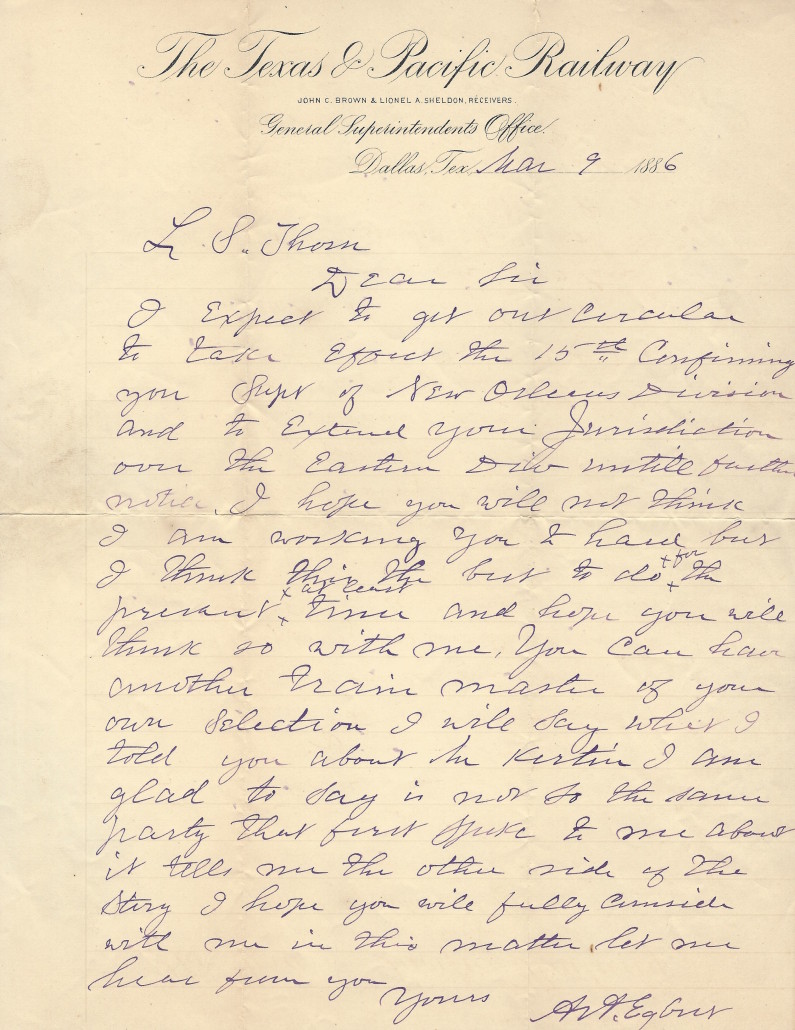 The Texas & Pacific Railway
JOHN C. BROWN & LIONEL A. SHELDON, RECEIVERS.
General Superintendents Office.
Dallas, Tex. Mar 9 1886
L S. Thorn
Dear Sir
I Expect to get out Circular
to take Effect the 15th Confirming
you Supt of New Orleans Division
and to Extend your Jurisdiction
over the Eastern Div untill further
notice. I hope you will not think
I am working you to hard but
I think this the best to do for the
present at least time and hope you will
think so with me. You Can have
another train master of your
own Selection I will Say what I
told you about Mr I am
glad to Say is not so the same
party that first Spoke to me about
it tells me the other side of the
Story I hope you will fully
with me in this matter let me
hear from you
Yours
Egbert